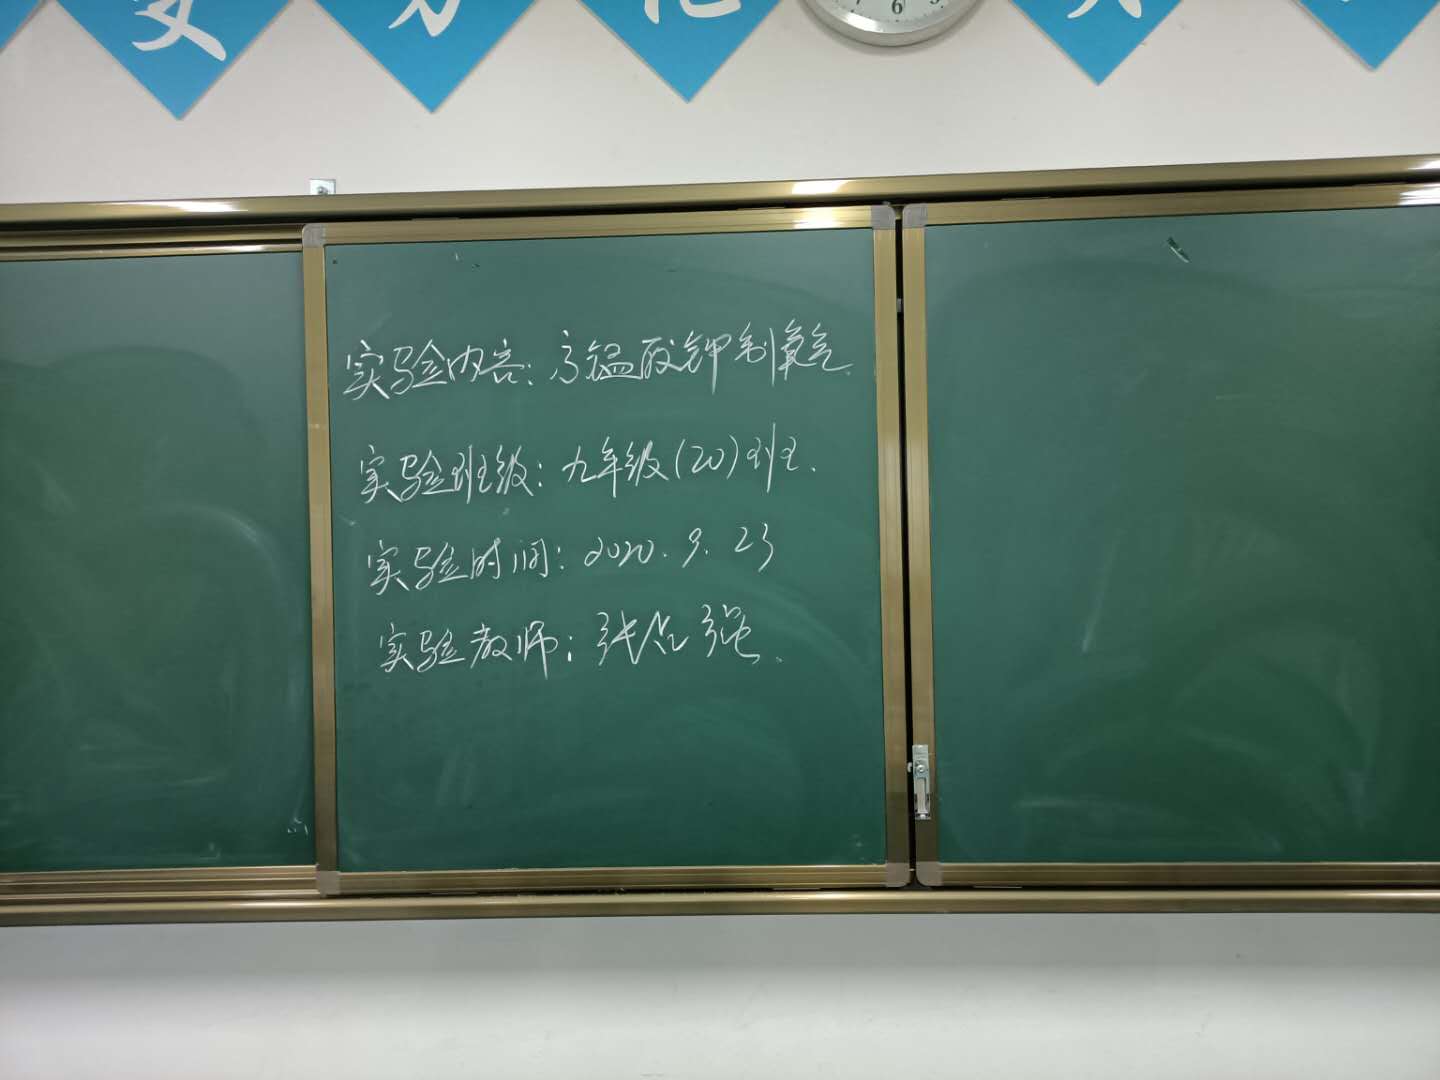 变
6
实验内容：高锰酸钾制氧气.
实验班级：九年级(20)班.
实验时间：2020.9.23
实验教师：张 强.